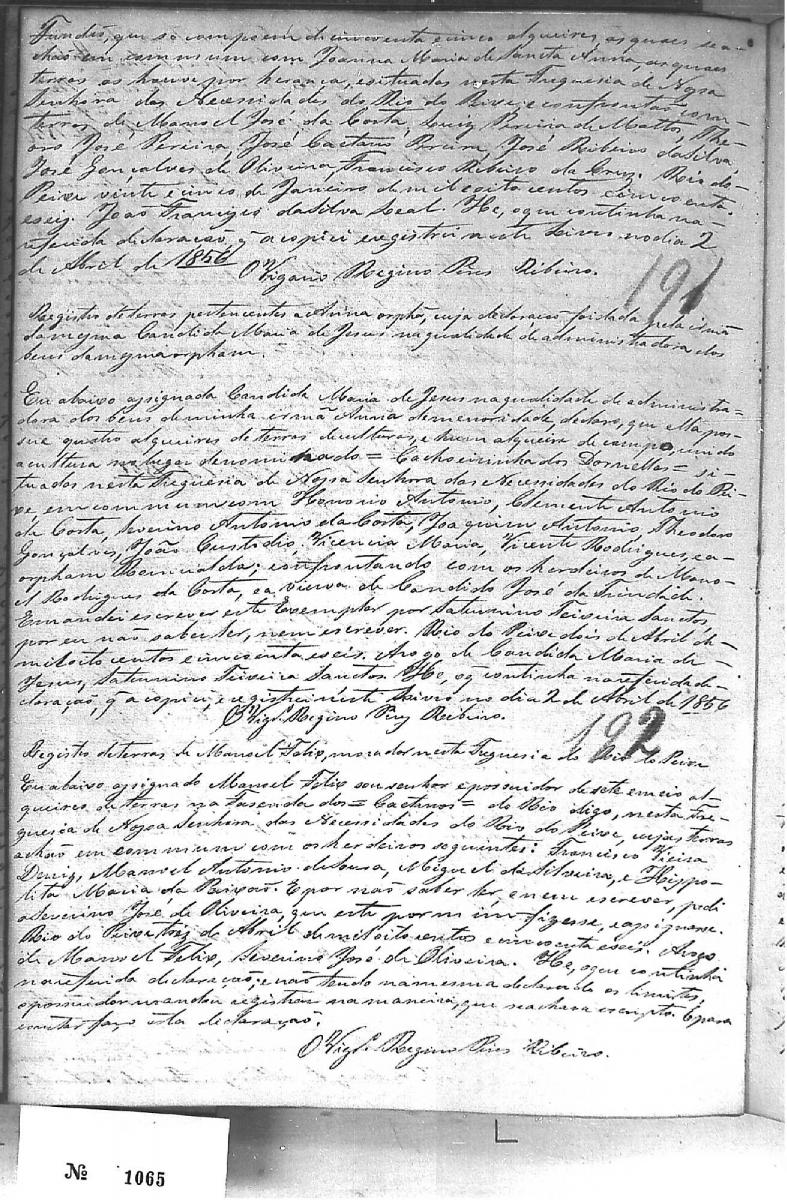 Fundo, que se compoem de cincoenta e cinco alqueires, as quaes se a-
chão em commum com Joanna Maria de Sancta Anna, as quaes
terras as houve por herança, e situadas nesta Freguesia de Nossa
Senhora das Necessidades do Rio do Peixe, e confrontão com
terras de Manoel José da Costa, Luiz Pereira de Mattos, The-
oro José Pereira, José Caetano Pereira, José Ribeiro da Silva
José Gonçalves de Oliveira, Francisco Ribeiro da Cruz. Rio do
Peixe vinte e cinco de Janeiro de mil e oito centos e cincoenta
e seis. João Francisco da Silva Leal. He, o que continha na
referida declaração, q̃ a copiei e registrei neste Livro no dia 2
de Abril de 1856
O Vigario Regino Pires Ribeiro.
191
Registro de terras pertencentes a Anna orphã, cuja declaração foi dada pela irmã
da mesma Candida Maria de Jesus na qualidade de administradora dos
bens da mesma orpham.
Eu abaixo assignada Candida Maria de Jesus na qualidade de administra-
dora dos bens de minha irmã Anna de menoridade, declaro, que ella pos-
sue quatro alqueires de terras de culturas, e hum alqueire de campo, unido
a cultura no lugar denominado = Cachoeirinha dos Dornelles = si-
tuados nesta Freguesia de Nossa Senhora das Necessidades do Rio do Pei-
xe, em commum com Honorio Antonio, Clemente Antonio
da Costa, Severino Antonio da Costa, Joaquim Antonio, Theodoro
Gonçalves, João Custodio, Vicencia Maria, Vicente Rodrigues, e a
orpham Romualda; confrontando com os herdeiros de Mano-
el Rodrigues da Costa, e a viuva de Candido José da Trindade.
E mandei escrever este Exemplar por Saturnino Teixeira Sanctos
por eu não saber ler, nem escrever. Rio do Peixe dois de Abril de
mil oito centos e cincoenta e seis. Arogo de Candida Maria de
Jesus, Saturnino Teixeira Sanctos. He, o q̃ continha na referida de-
claração, q̃ a copiei, e registrei neste Livro no dia 2 de Abril de 1856
O Vigr.º Regino Pires Ribeiro.
192
Registro de terras de Manoel Felix, morador nesta Freguesia do Rio do Peixe
Eu abaixo assignado Manoel Felix sou senhor e possuidor de sete e meio al-
queires de terras na Fasenda dos = Caetanos = do Rio digo, nesta Fre-
guesia de Nossa Senhora das Necessidades do Rio do Peixe, cujas terras
achão em commum com os herdeiros seguintes: Francisco Vieira
Diniz, Manoel Antonio de Sousa, Miguel da Silveira, e Hippo-
lita Maria da Paixão. E por não saber ler, e nem escrever, pedi
a Severino José de Oliveira, que este por mim fizesse, e assignasse.
Rio do Peixe tres de Abril de mil oito centos e cincoenta e seis. Arogo
de Manoel Felix, Severino José de Oliveira. He, o que continha
na referida declaração, e não tendo na mesma declarado os limites,
o possuidor mandou registrar na maneira, que se achava escripto. E para
constar faço esta declaração.
O Vigr.º Regino Pires Ribeiro.
Nº 1065